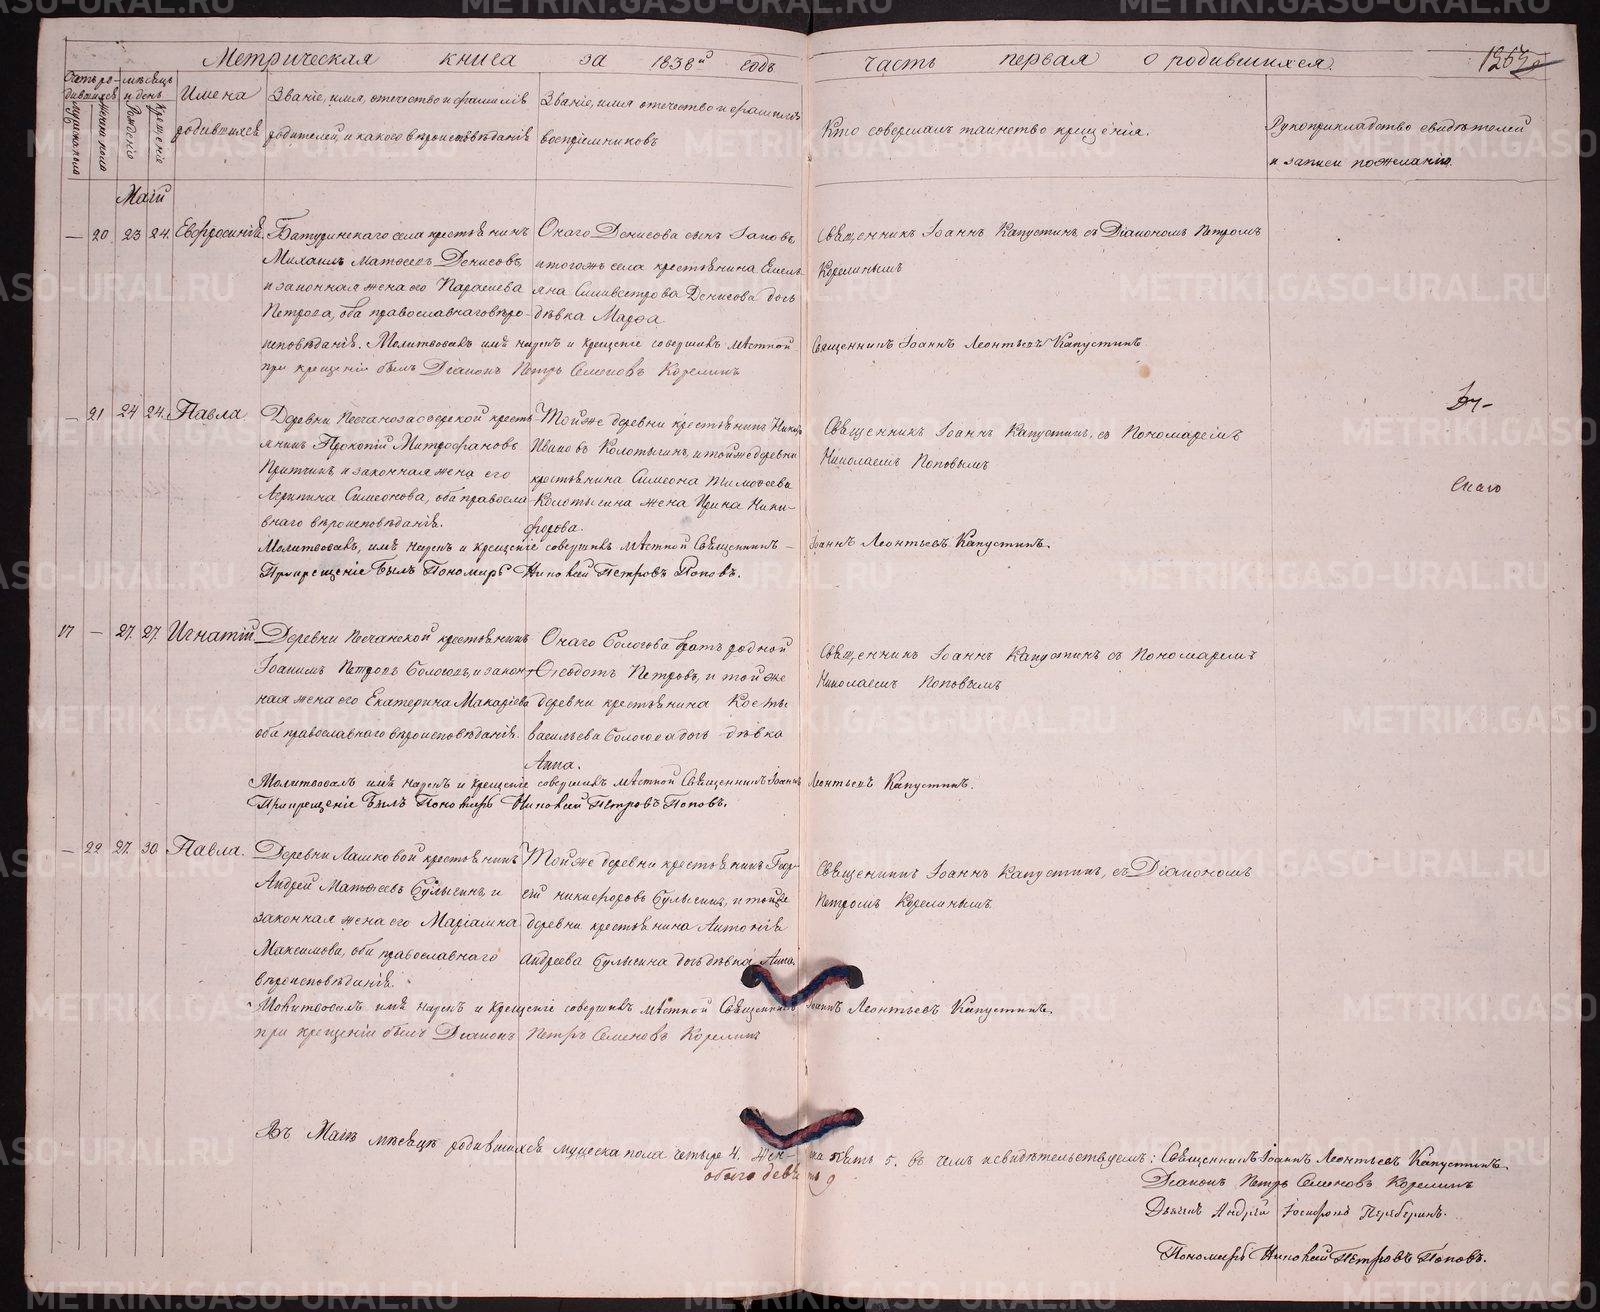 Метрическая книга за 1838й годъ часть первая о родившихся.
Счетъ родившихся
мужеска пола
женска пола
мѣсяцъ и день
Рожденія
Крещенія
Имена родившихся
Званіе, имя, отечество и фамилія
родителей, и какого вѣроисповѣданія
Званіе, имя отечество и фамилія
воспріемниковъ
Кто совершалъ таинство крещенія.
Рукоприкладство свидѣтелей
и записи по желанію.
Маій
— 20 23 24. Евфросинія.
Батуринскаго села крестьянинъ
Михаилъ Матѳеевъ Денисовъ,
и законная жена его Параскева
Петрова, оба православнаго вѣро-
исповѣданія.
Онаго Денисова сынъ Іаковъ
и тогожъ села крестьянина Емель
яна Силивестрова Денисова дочь
дѣвка Марѳа
Священникъ Іоаннъ Капустинъ съ Діакономъ Петромъ
Корелинымъ
Молитвовалъ имя нарекъ и крещеніе совершилъ мѣстной Священникъ Іоаннъ Леонтьевъ Капустинъ
при крещеніи былъ Діаконъ Петръ Семеновъ Корелинъ
— 21 24 24. Павла
Деревни Песчаноозерской кресть
янинъ Прокопій Митрофановъ
и законная жена его
Агрипина Симеонова, оба правосла
внаго вѣроисповѣданія.
Той же деревни крестьянинъ
Ивановъ Колотыгинъ, и той же деревни
крестьянина Симеона Тимоѳеева
Колотыгина жена Ирина Ники-
форова.
Священникъ Іоаннъ Капустинъ, съ Пономаремъ
Николаемъ Поповымъ
Молитвовалъ, имя нарекъ и крещеніе совершилъ мѣстной Священникъ — Іоаннъ Леонтьевъ Капустинъ.
При крещеніе былъ Пономарь Николай Петровъ Поповъ.
17 — 27. 27. Игнатій
Деревни Песчанской крестьянинъ
Іоакимъ Петровъ Сологовъ, и закон-
ная жена его Екатерина Макаріева
оба православнаго вѣроисповѣданія.
Онаго Сологова братъ родной
Ѳеодотъ Петровъ, и той же
деревни крестьянина Косты
Васильева Сологова дочь дѣвка
Анна.
Священникъ Іоаннъ Капустинъ съ Пономаремъ
Николаемъ Поповымъ
Молитвовалъ имя нарекъ и крещеніе совершилъ мѣстной Священникъ Іоаннъ Леонтьевъ Капустинъ.
При крещеніе былъ Пономарь Николай Петровъ Поповъ.
— 22 27. 30 Павла.
Деревни Машковой крестьянинъ
Андрей Матѳеевъ Сулыгинъ, и
законная жена его Маріамна
Максимова, оба православнаго
вѣроисповѣданія.
Той же деревни крестьянинъ Геор-
гій Никифоровъ Сулыгинъ, и той же
деревни крестьянина Антонія
Андреева Сулыгина дочь дѣвка Анна.
Священникъ Іоаннъ Капустинъ, съ Діакономъ
Петромъ Корелинымъ
Молитвовалъ имя нарекъ и крещеніе совершилъ мѣстной Священникъ Іоаннъ Леонтьевъ Капустинъ.
при крещеніи былъ Діаконъ Петръ Семеновъ Корелинъ
Въ Маіѣ мѣсяцѣ родившихся мужеска пола четыре 4. жен-ска пять 5. въ чемъ и свидѣтельствуемъ: Священникъ Іоаннъ Леонтьевъ Капустинъ.
обоего девять 9
Діаконъ Петръ Семеновъ Корелинъ
Дьячекъ Андрей
Пономарь Николай Петровъ Поповъ.
METRIKI.GASO-URAL.RU